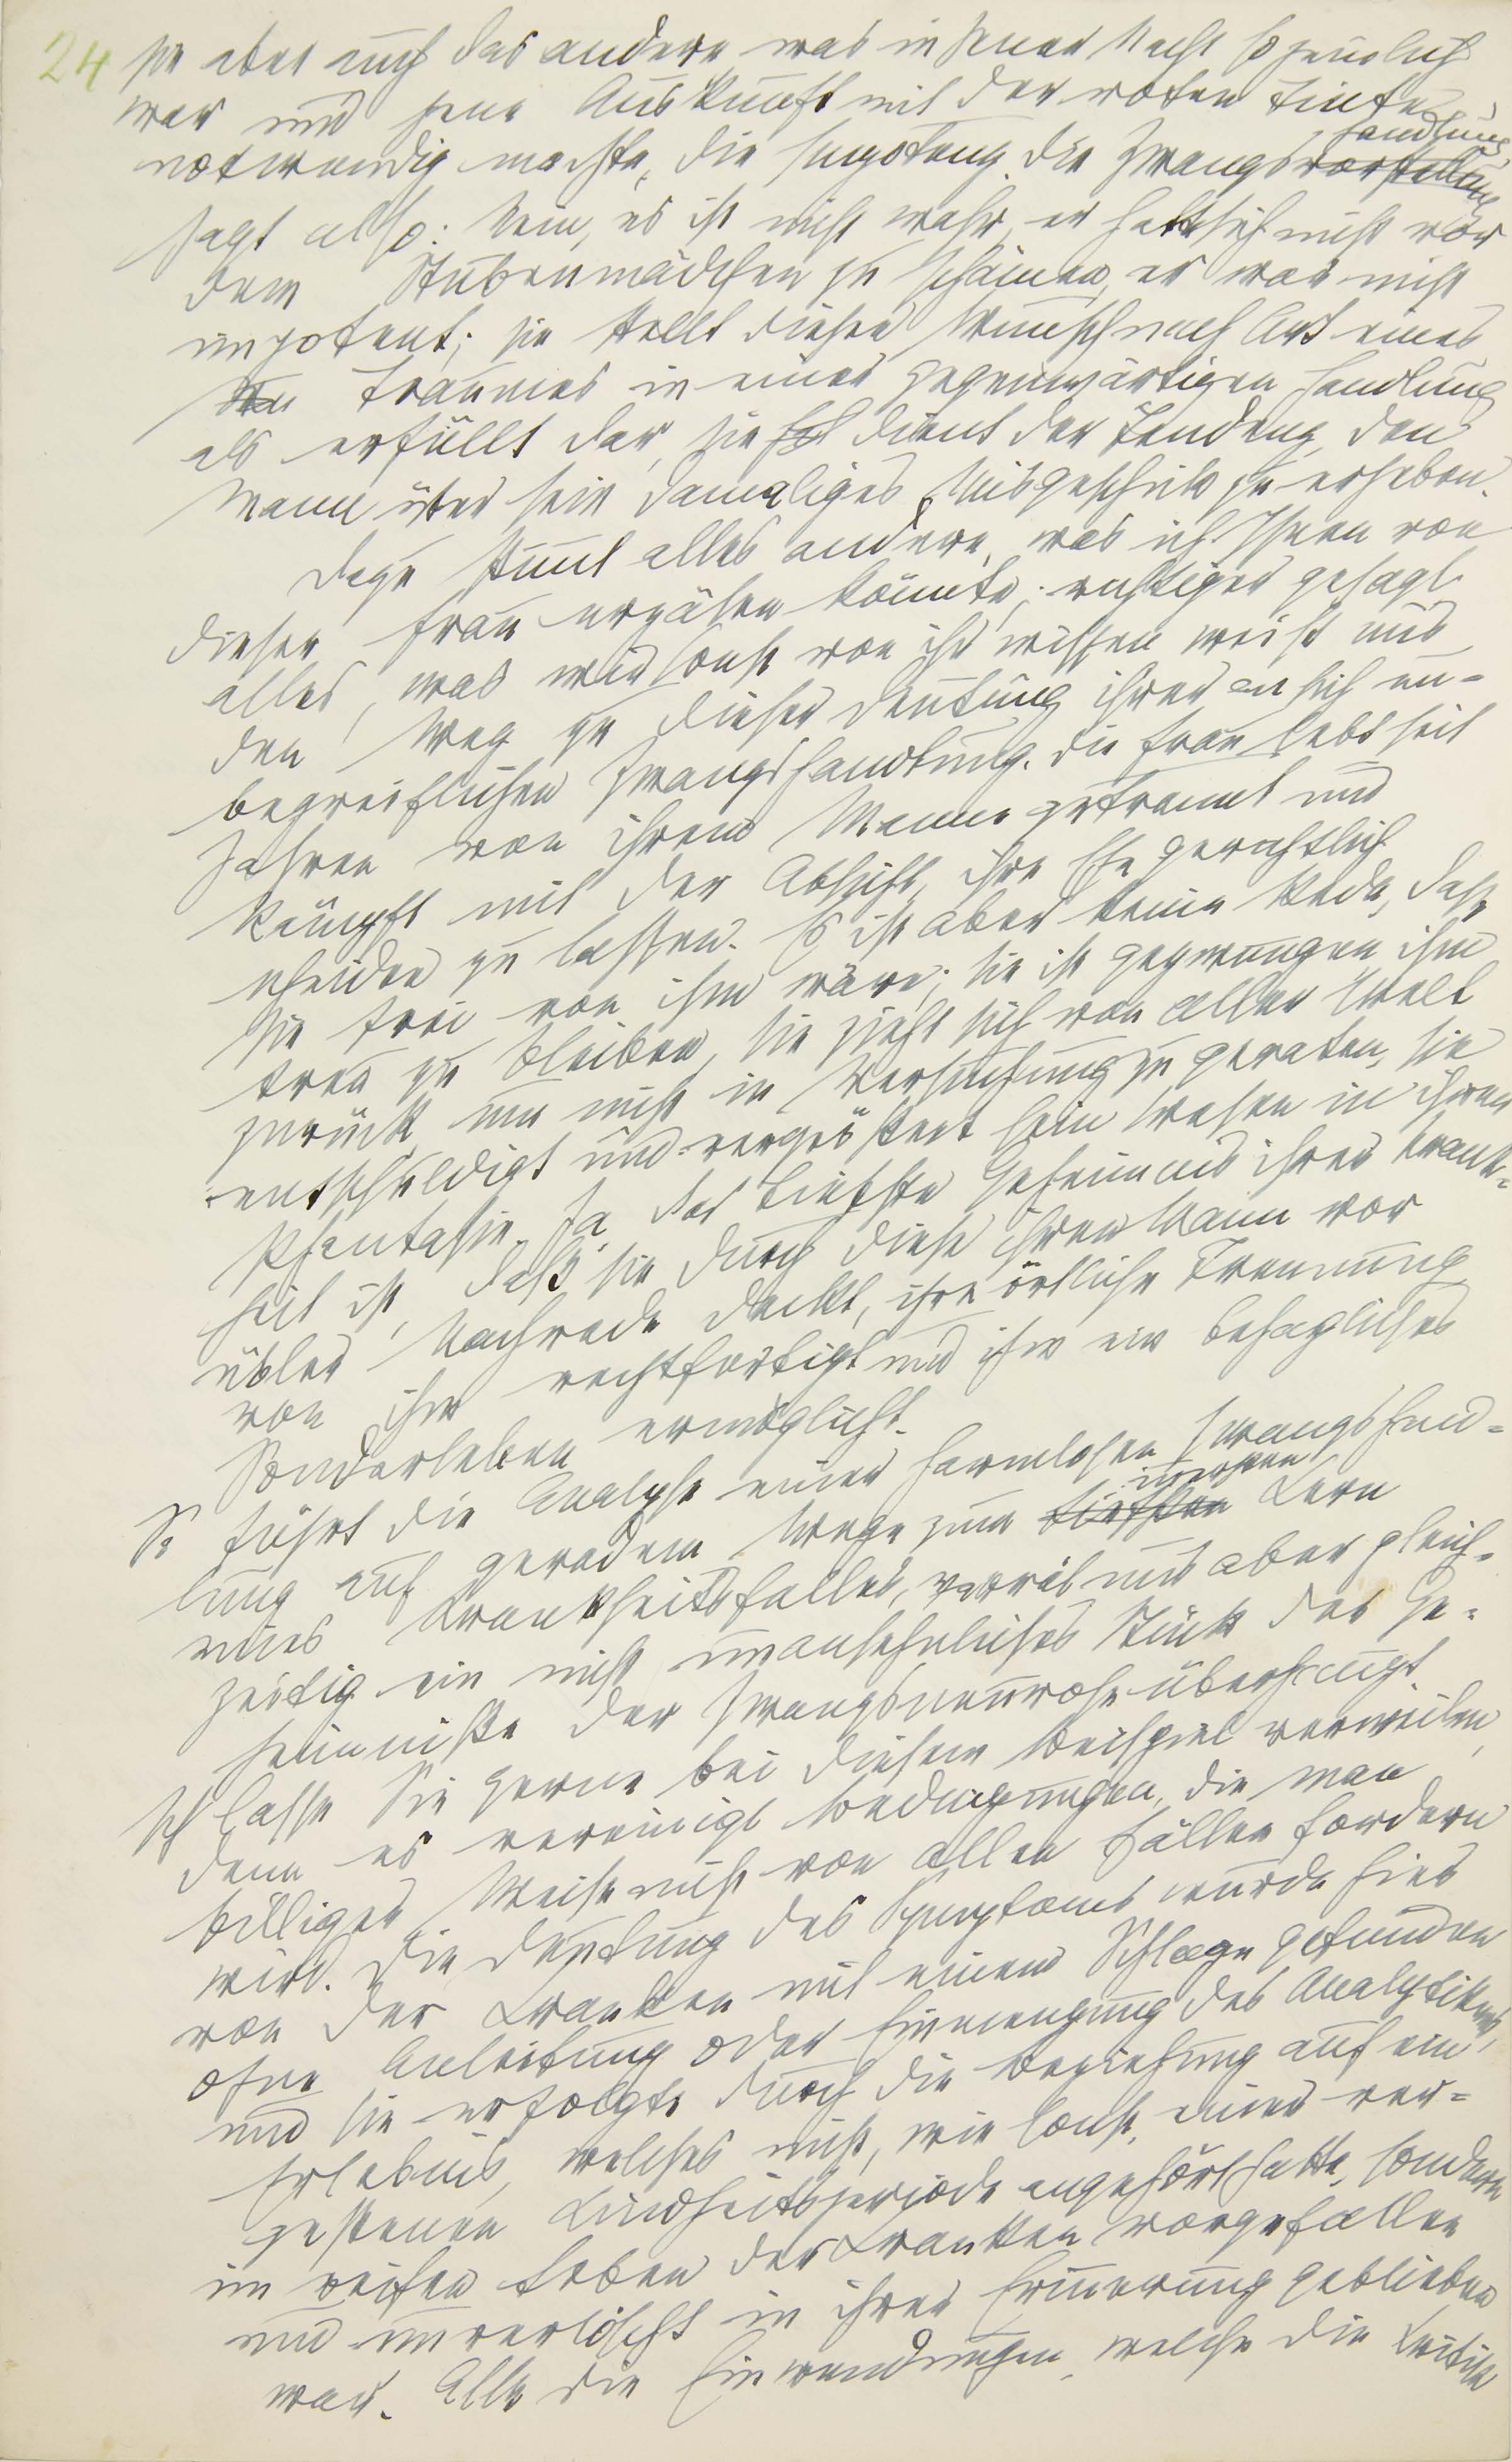 24 sie aber auch das andere, was in jener Nacht so peinlich
war und jene Auskunft mit der roten Tinte
notwendig machte, die Impotenz. Die Zwangsvorstellung handlung
sagt also: Nein, es ist nicht wahr, er hatte sich nicht vor
dem Stubenmädchen zu schämen, er war nicht
impotent; sie stellt diesen Wunsch nach Art eines
Traumes in einer gegenwärtigen Handlung
als erfüllt dar, sie dient der Tendenz, den
Mann über sein damaliges Misgeschick zu erheben.
Dazu stimmt alles andere, was ich Ihnen von
dieser Frau erzälen könnte; richtiger gesagt:
alles, was wir sonst von ihr wissen, weist uns
den Weg zu dieser Deutung ihrer an sich un-
begreiflichen Zwangshandlung. Die Frau lebt seit
Jahren von ihrem Manne getrennt und
kämpft mit der Absicht, ihre Ehe gerichtlich
scheiden zu lassen. Es ist aber keine Rede, daß
sie frei von ihm wäre; sie ist gezwungen, ihm
treu zu bleiben, sie zieht sich von aller Welt
zurück, um nicht in Versuchung zu geraten, sie
entschuldigt und vergrößert sein Wesen in ihrer
Phantasie. Ja, das tiefste Geheimnis ihrer Krank-
heit ist, daß sie durch diese ihren Mann vor
übler Nachrede deckt, ihre örtliche Trennung
von ihm rechtfertigt und ihm ein behagliches
Sonderleben ermöglicht.
So führt die Analyse einer harmlosen Zwangshand-
lung auf geradem Wege zum tiefsten innersten Kern
eines Krankheitsfalles, verrät uns aber gleich-
zeitig ein nicht unansehnliches Stück des Ge-
heimnisses der Zwangsneurose überhaupt.
Ich lasse Sie gerne bei diesem Beispiel verweilen,
denn es vereinigt Bedingungen, die man
billiger Weise nicht von allen Fällen fordern
wird. Die Deutung des Symptoms wurde hier
von der Kranken mit einem Schlage gefunden
ohne Anleitung oder Einmengung des Analytikers,
und sie erfolgte durch die Beziehung auf ein
Erlebnis, welches nicht, wie sonst, einer ver-
gessenen Kindheitsperiode angehört hatte, sondern
im reifen Leben der Kranken vorgefallen
und unverlöscht in ihrer Erinnerung geblieben
war. Alle die Einwendungen, welche die Kritik